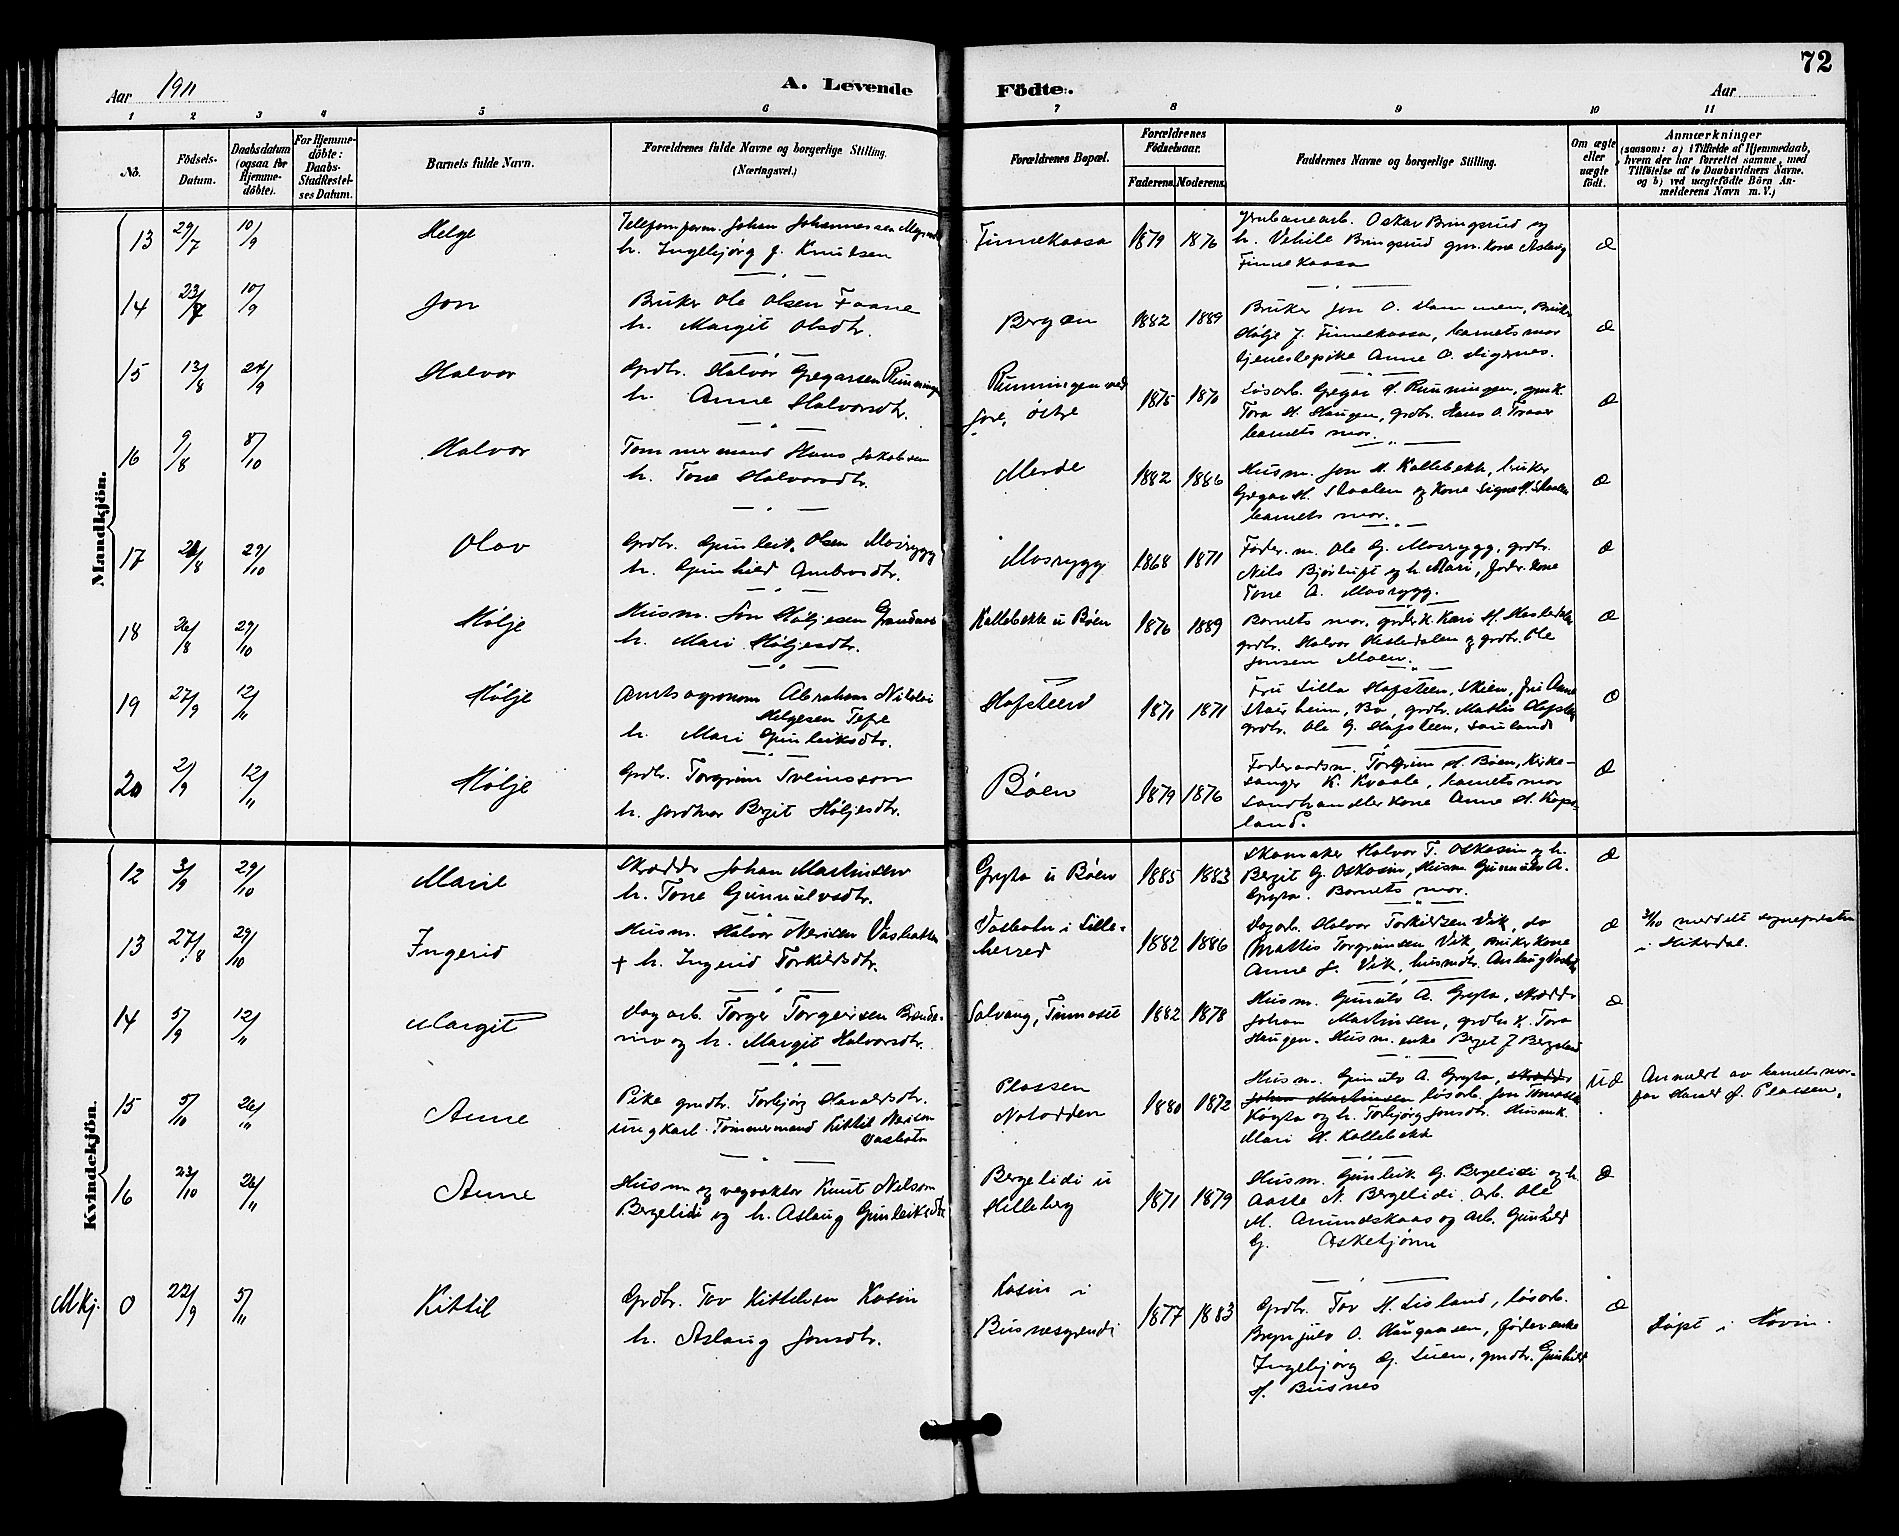 72
Aar 1911
A. Levende Födte.
Aar
1 2 3 4 5 6 7 8 9 10 11
No.
Födsels-Datum.
Daabsdatum (ogsaa for Hjemmedöbte).
For Hjemmedöbte: Daabs-Stadfæstelses Datum.
Barnets fulde Navn.
Forældrenes fulde Navne og borgerlige Stilling. (Næringsvei.)
Forældrenes Bopæl.
Forældrenes Födselsaar.
Faderens. Moderens.
Faddernes Navne og borgerlige Stilling.
Om ægte eller uægte födt.
Anmærkninger
(saasom: a) i Tilfælde af Hjemmedaab, hvem der har forrettet samme, med Tilföielse af to Daabsvidners Navne. og b) ved uægtefödte Börn Anmelderens Navn m. V.)
Mandkjön.
13 29/7 10/9 Helge
Johan Johannessen
h. Ingebjørg J. Knutsen
Finnekaasa 1879 1876
Oskar Bringsrud og
h. Bringsrud gm. kone Aslaug
Finnekaasa
æ
14 23/7 10/9 Jon
Bruker Ole Olsen Faane
h. Margit Olsdtr.
Bergen 1882 1889
Bruker Jon O. Bruker
Hølje J. Finnekaasa, barnets mor
tjenestepike Anne O.
æ
15 13/8 24/9 Halvor
Grdbr. Halvor Gregarsen
h. Anne Halvorsdtr.
østre 1875 1870
Løsarb. Gregar H.
Tora H. Haugen, grdbr. Hans O.
barnets mor.
æ
16 9/8 8/10 Halvor
Tømmermand Hans Jakobsen
h. Tone Halvorsdtr.
1882 1886
Husm. Jon H. Kallebekk, bruker
Gregar H. Skaalen og kone Signe H. Skaalen
barnets mor.
æ
17 29/10 Olav
Grdbr. Gunleik Olsen Mosrygg
h. Gunhild Ambrosdtr.
Mosrygg 1868 1871
Føder.m. Ole G. Mosrygg, grdbr.
Nils og h. Mari, føder.kone
Tone A. Mosrygg.
æ
18 26/8 29/10 Hølje
Husm. Jon Høljesen
h. Mari Høljesdtr.
Kallebekk u Bøen 1876 1889
Barnets mor, Kari H.
grdbr. Halvor og grdbr. Ole
Jonsen Moen.
æ
19 27/9 12/11 Hølje
Amtsagronom Abraham Nikolai
Helgesen Tefre
h. Mari Gunleiksdtr.
Hafsteen 1871 1871
Fru Silla Hafsteen, Skien, fru Anne
Bø, grdbr. Mathis
grdbr. Ole G. Hafsteen, Sauland
æ
20 2/9 12/11 Hølje
Grdbr. Torgrim Sveinsson
h. Jordmor Bergit Høljesdtr.
Bøen 1879 1876
Føderaadsm. Torgrim H. Bøen, Kirke-
sanger K. Kvaale, barnets mor
Landhandlerkone Anne H.
land.
æ
Kvindekjön.
12 3/9 29/10 Marie
Skrædder Johan Martinsen
h. Tone Gunnulvsdtr.
Gryta u Bøen 1885 1883
Skomaker Halvor T. og h.
Bergit G. Husm. Gunnulv A.
Gryta. Barnets mor.
æ
13 27/8 29/10 Ingerid
Husm. Halvor Nerisen Vasbotn
+ h. Ingerid Torkildsdtr.
Vasbotn i Lille-
herred 1882 1886
Dagarb. Halvor Torkildsen Vik, do
Mattis Torgrimsen Vik, brukerkone
Anne J. Vik, husmdtr. Aslaug Vasbotn
æ
31/10 meddelt sognepresten
i Hiterdal.
14 5/9 12/11 Margit
Dagarb. Torger Torgersen
mo og h. Margit Halvorsdtr.
Solvang, Tinnoset 1882 1878
Husm. Gunnulv A. Gryta, skrædder
Johan Martinsen, grdbr.k. Tora
Haugen. Husm.enke Berget J
æ
15 5/10 26/11 Anne
Pike gmdtr. Torbjørg Haraldsdtr.
ungkarl. Tømmermand Kittil Nerisen
Vasbotn
Plassen
Notodden 1880 1872
Husm. Gunnulv A. Gryta, skrædder
Johan Martinsen løsarb. Jon
og h. Torbjørg Jonsdtr. Husmk.
Mari H. Kallebekk
uæ
Anmeldt av barnets mor-
far Harald J. Plassen.
16 22/10 26/11 Anne
Husm og vegvokter Knut Nelson
Bergelidi og h. Aslaug Gunleiksdtr.
Bergelidi u
Hilleberg 1871 1879
Husm. Gunleik G. Bergelidi og h.
Aaste N. Bergelidi, arb. Ole
M. Amundskaas og arb. Gunhild
G. Askehjønn
æ
Mkj. 0 22/9 5/11 Kittil
Grdbr. Tov Kittilsen Kosin
h. Aslaug Jonsdtr.
Kosin i
Busnesgrendi 1877 1883
Grdbr. Tov H. Lisland, løsarb.
Brynjulv O. Haugaasen, føder.enke
Ingebjørg G. gmdtr. Gunhild
H. Busnes
æ
Døpt i Hovin.